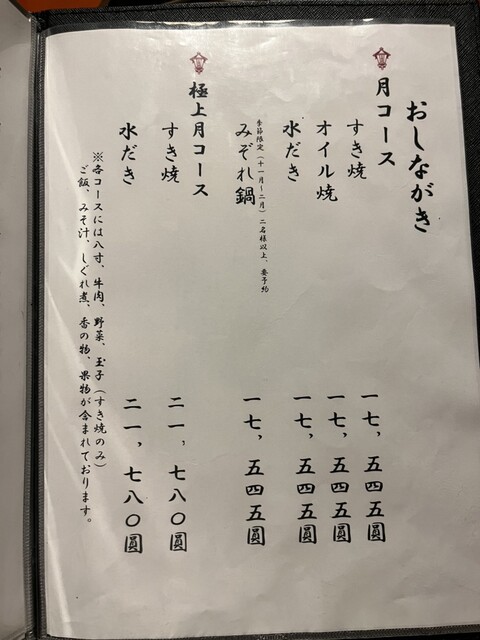 おしながき
月コース
すき焼 一七,五四五圓
オイル焼 一七,五四五圓
水だき 一七,五四五圓
季節限定（十一月〜二月）二名様以上、要予約
みぞれ鍋 一七,五四五圓
極上月コース
すき焼 二一,七八〇圓
水だき 二一,七八〇圓
※各コースには八寸、牛肉、野菜、玉子（すき焼のみ）
ご飯、みそ汁、しぐれ煮、香の物、果物が含まれております。